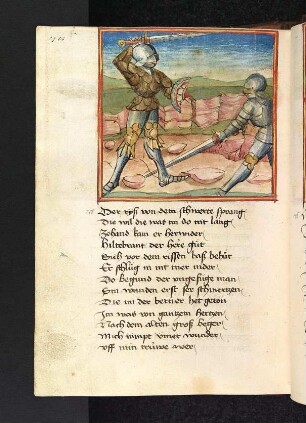 Der rysß von dem schwerte sprang
Die wil die was im do nit lang
Zehand kam er herwider
Hiltebrant der here gůt
Sich vor dem rissen baß behůt
Er schlůg in nit mer nider
Do begund der ungefüge man
Sin wunden erst ser schmertzen
Die im der berner het geton
Im was von gantzem hertzen
Nach dem alten groß beger
Mich nimpt ymer wunder
uff min trüwe wer